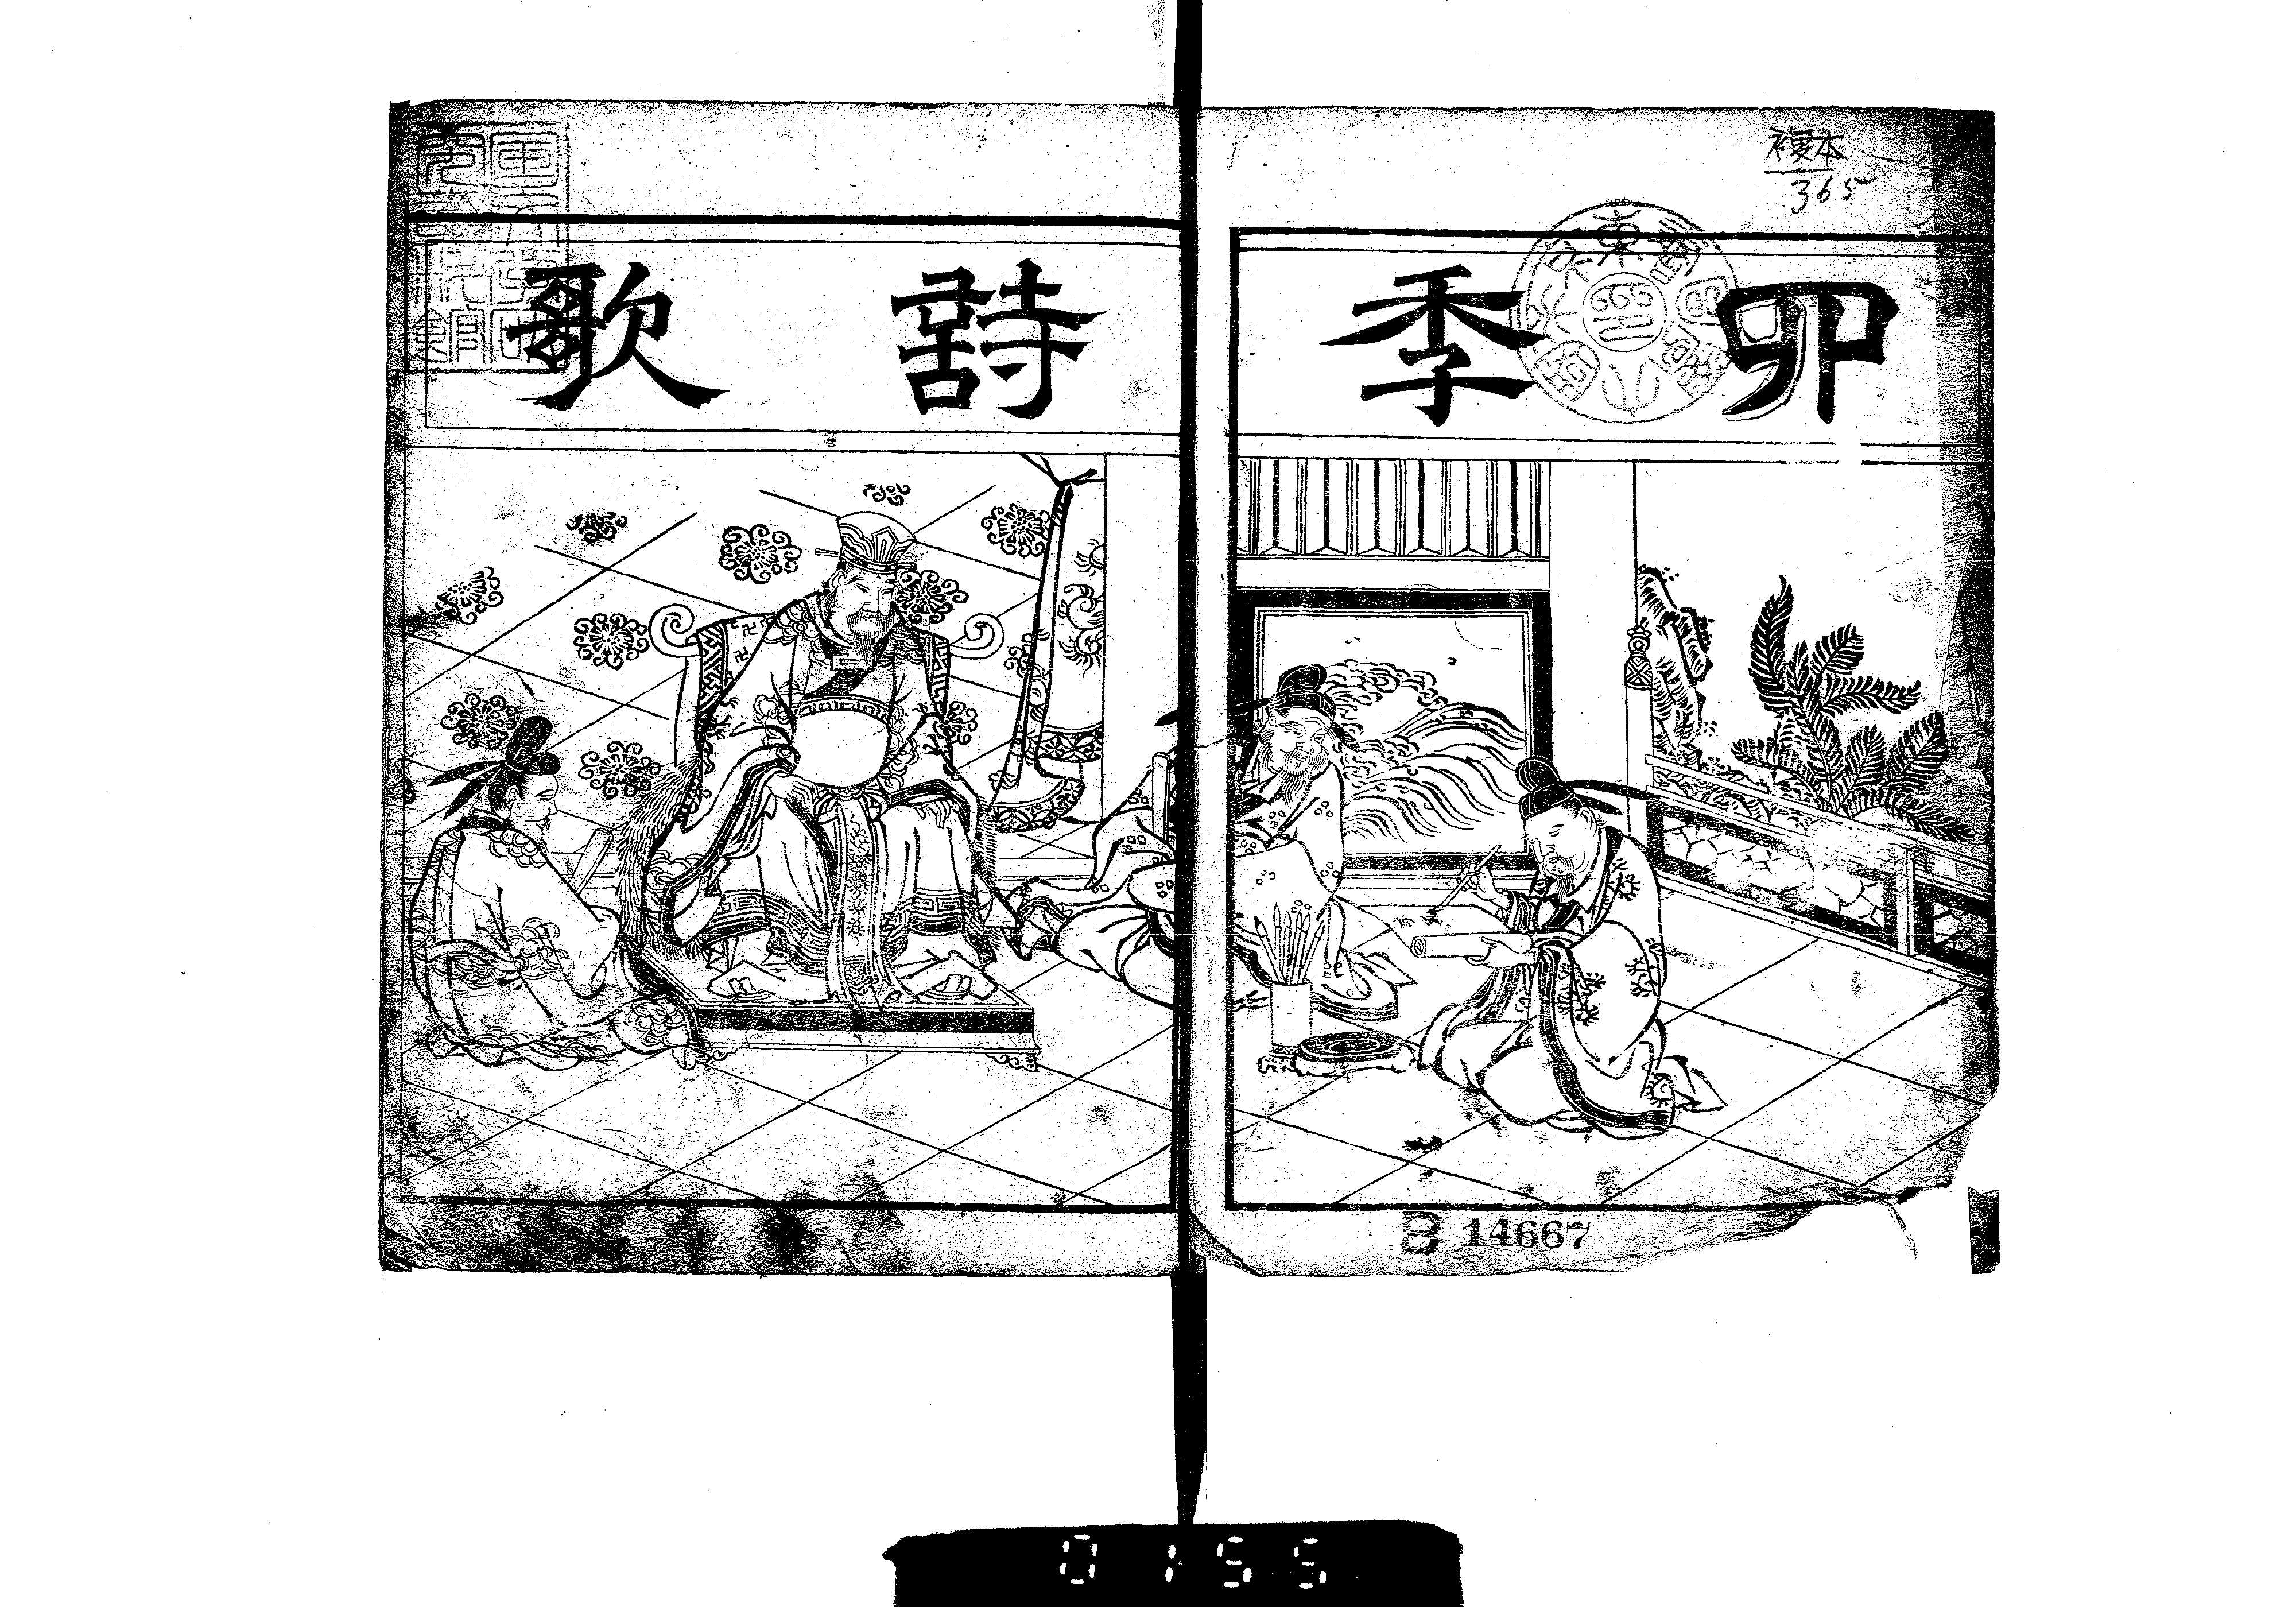 複本
365
卯季詩歌
14667
0155